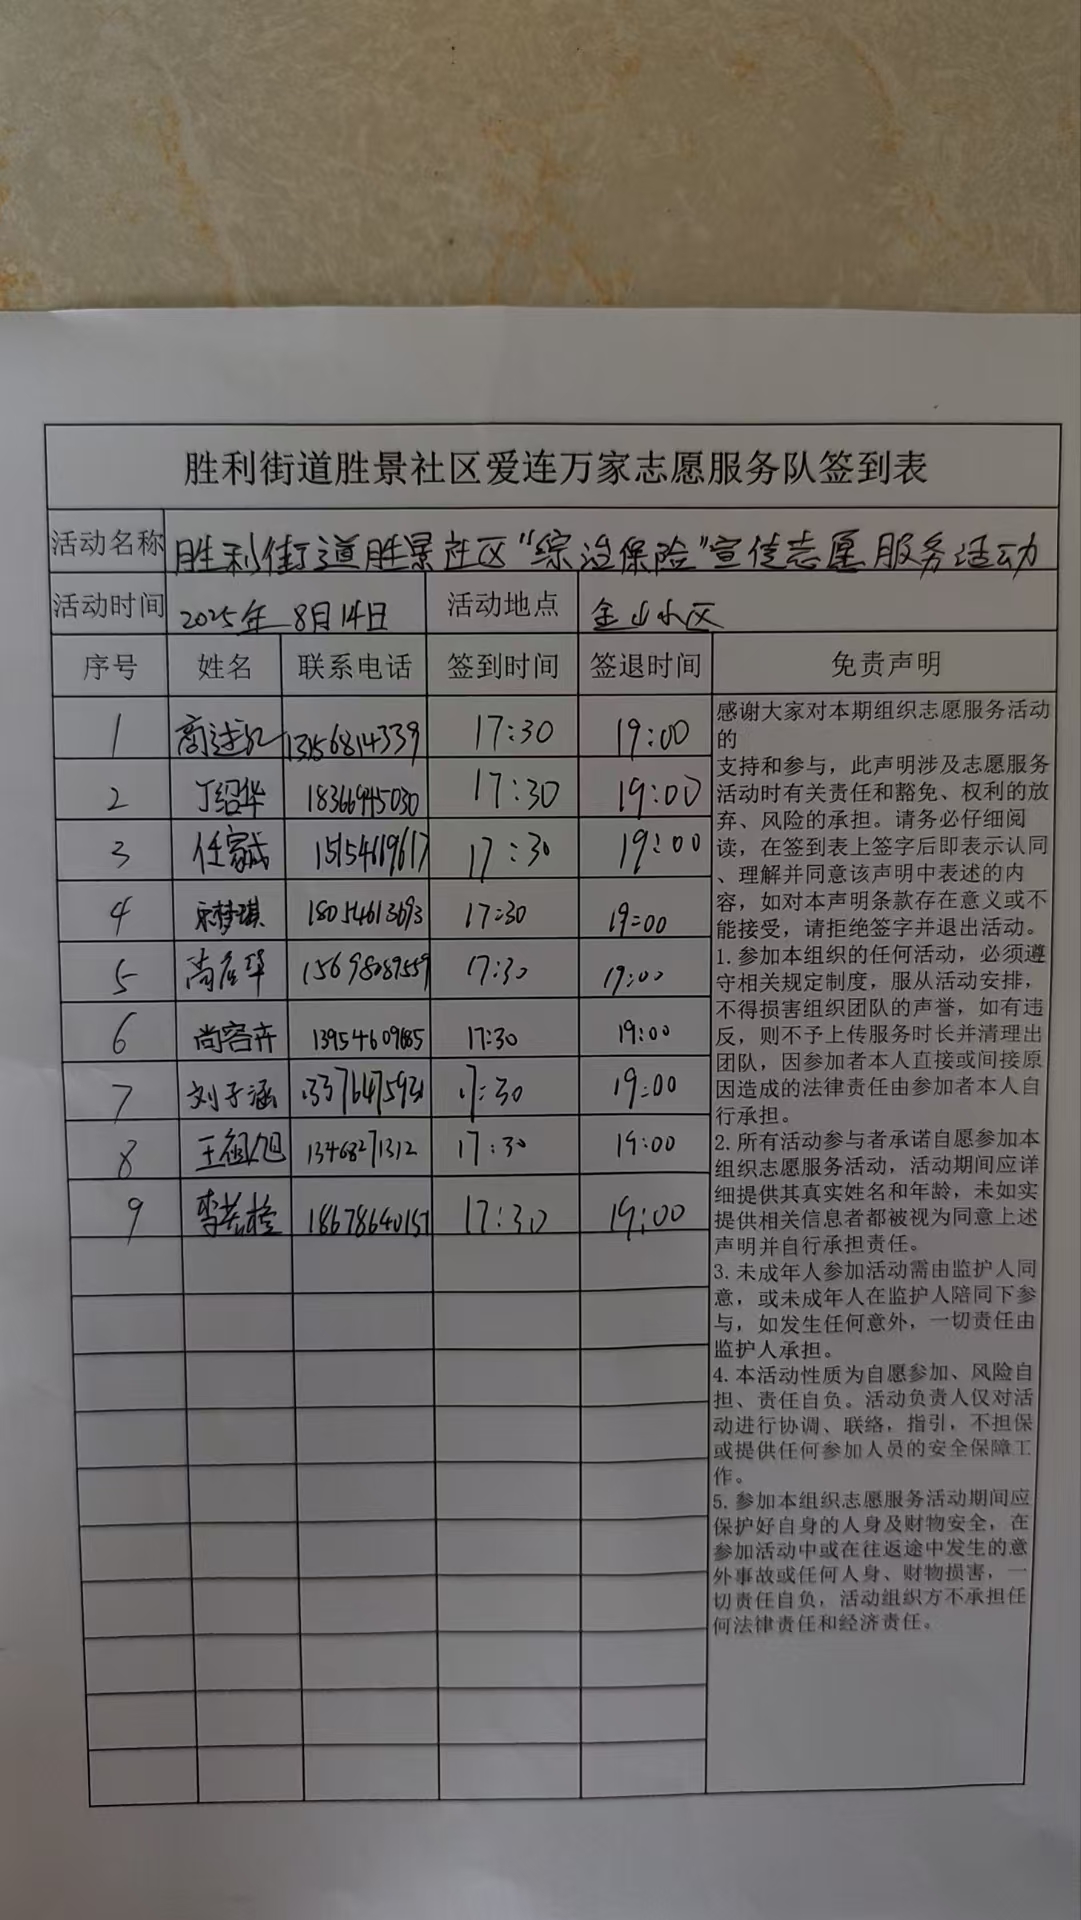 胜利街道胜景社区爱连万家志愿服务队签到表
活动名称 胜利街道胜景社区“综治保险”宣传志愿服务活动
活动时间 2025年8月14日 活动地点 金山小区
序号 姓名 联系电话 签到时间 签退时间 免责声明
1 13156814339 17:30 19:00
2 丁绍华 18366945030 17:30 19:00
3 任家诚 15154619617 17:30 19:00
4 宋梦琪 18054613693 17:30 19:00
5 15698089559 17:30 19:00
6 尚容卉 17:30 19:00
7 刘子涵 17:30 19:00
8 王祖旭 13468271312 17:30 19:00
9 18678640157 17:30 19:00
感谢大家对本期组织志愿服务活动
的
支持和参与，此声明涉及志愿服务
活动时有关责任和豁免、权利的放
弃、风险的承担。请务必仔细阅
读，在签到表上签字后即表示认同
、理解并同意该声明中表述的内
容，如对本声明条款存在意义或不
能接受，请拒绝签字并退出活动。
1.参加本组织的任何活动，必须遵
守相关规定制度，服从活动安排，
不得损害组织团队的声誉，如有违
反，则不予上传服务时长并清理出
团队，因参加者本人直接或间接原
因造成的法律责任由参加者本人自
行承担。
2.所有活动参与者承诺自愿参加本
组织志愿服务活动，活动期间应详
细提供其真实姓名和年龄，未如实
提供相关信息者都被视为同意上述
声明并自行承担责任。
3.未成年人参加活动需由监护人同
意，或未成年人在监护人陪同下参
与，如发生任何意外，一切责任由
监护人承担。
4.本活动性质为自愿参加、风险自
担、责任自负。活动负责人仅对活
动进行协调、联络，指引，不担保
或提供任何参加人员的安全保障工
作。
5.参加本组织志愿服务活动期间应
保护好自身的人身及财物安全，在
参加活动中或在往返途中发生的意
外事故或任何人身、财物损害，一
切责任自负，活动组织方不承担任
何法律责任和经济责任。